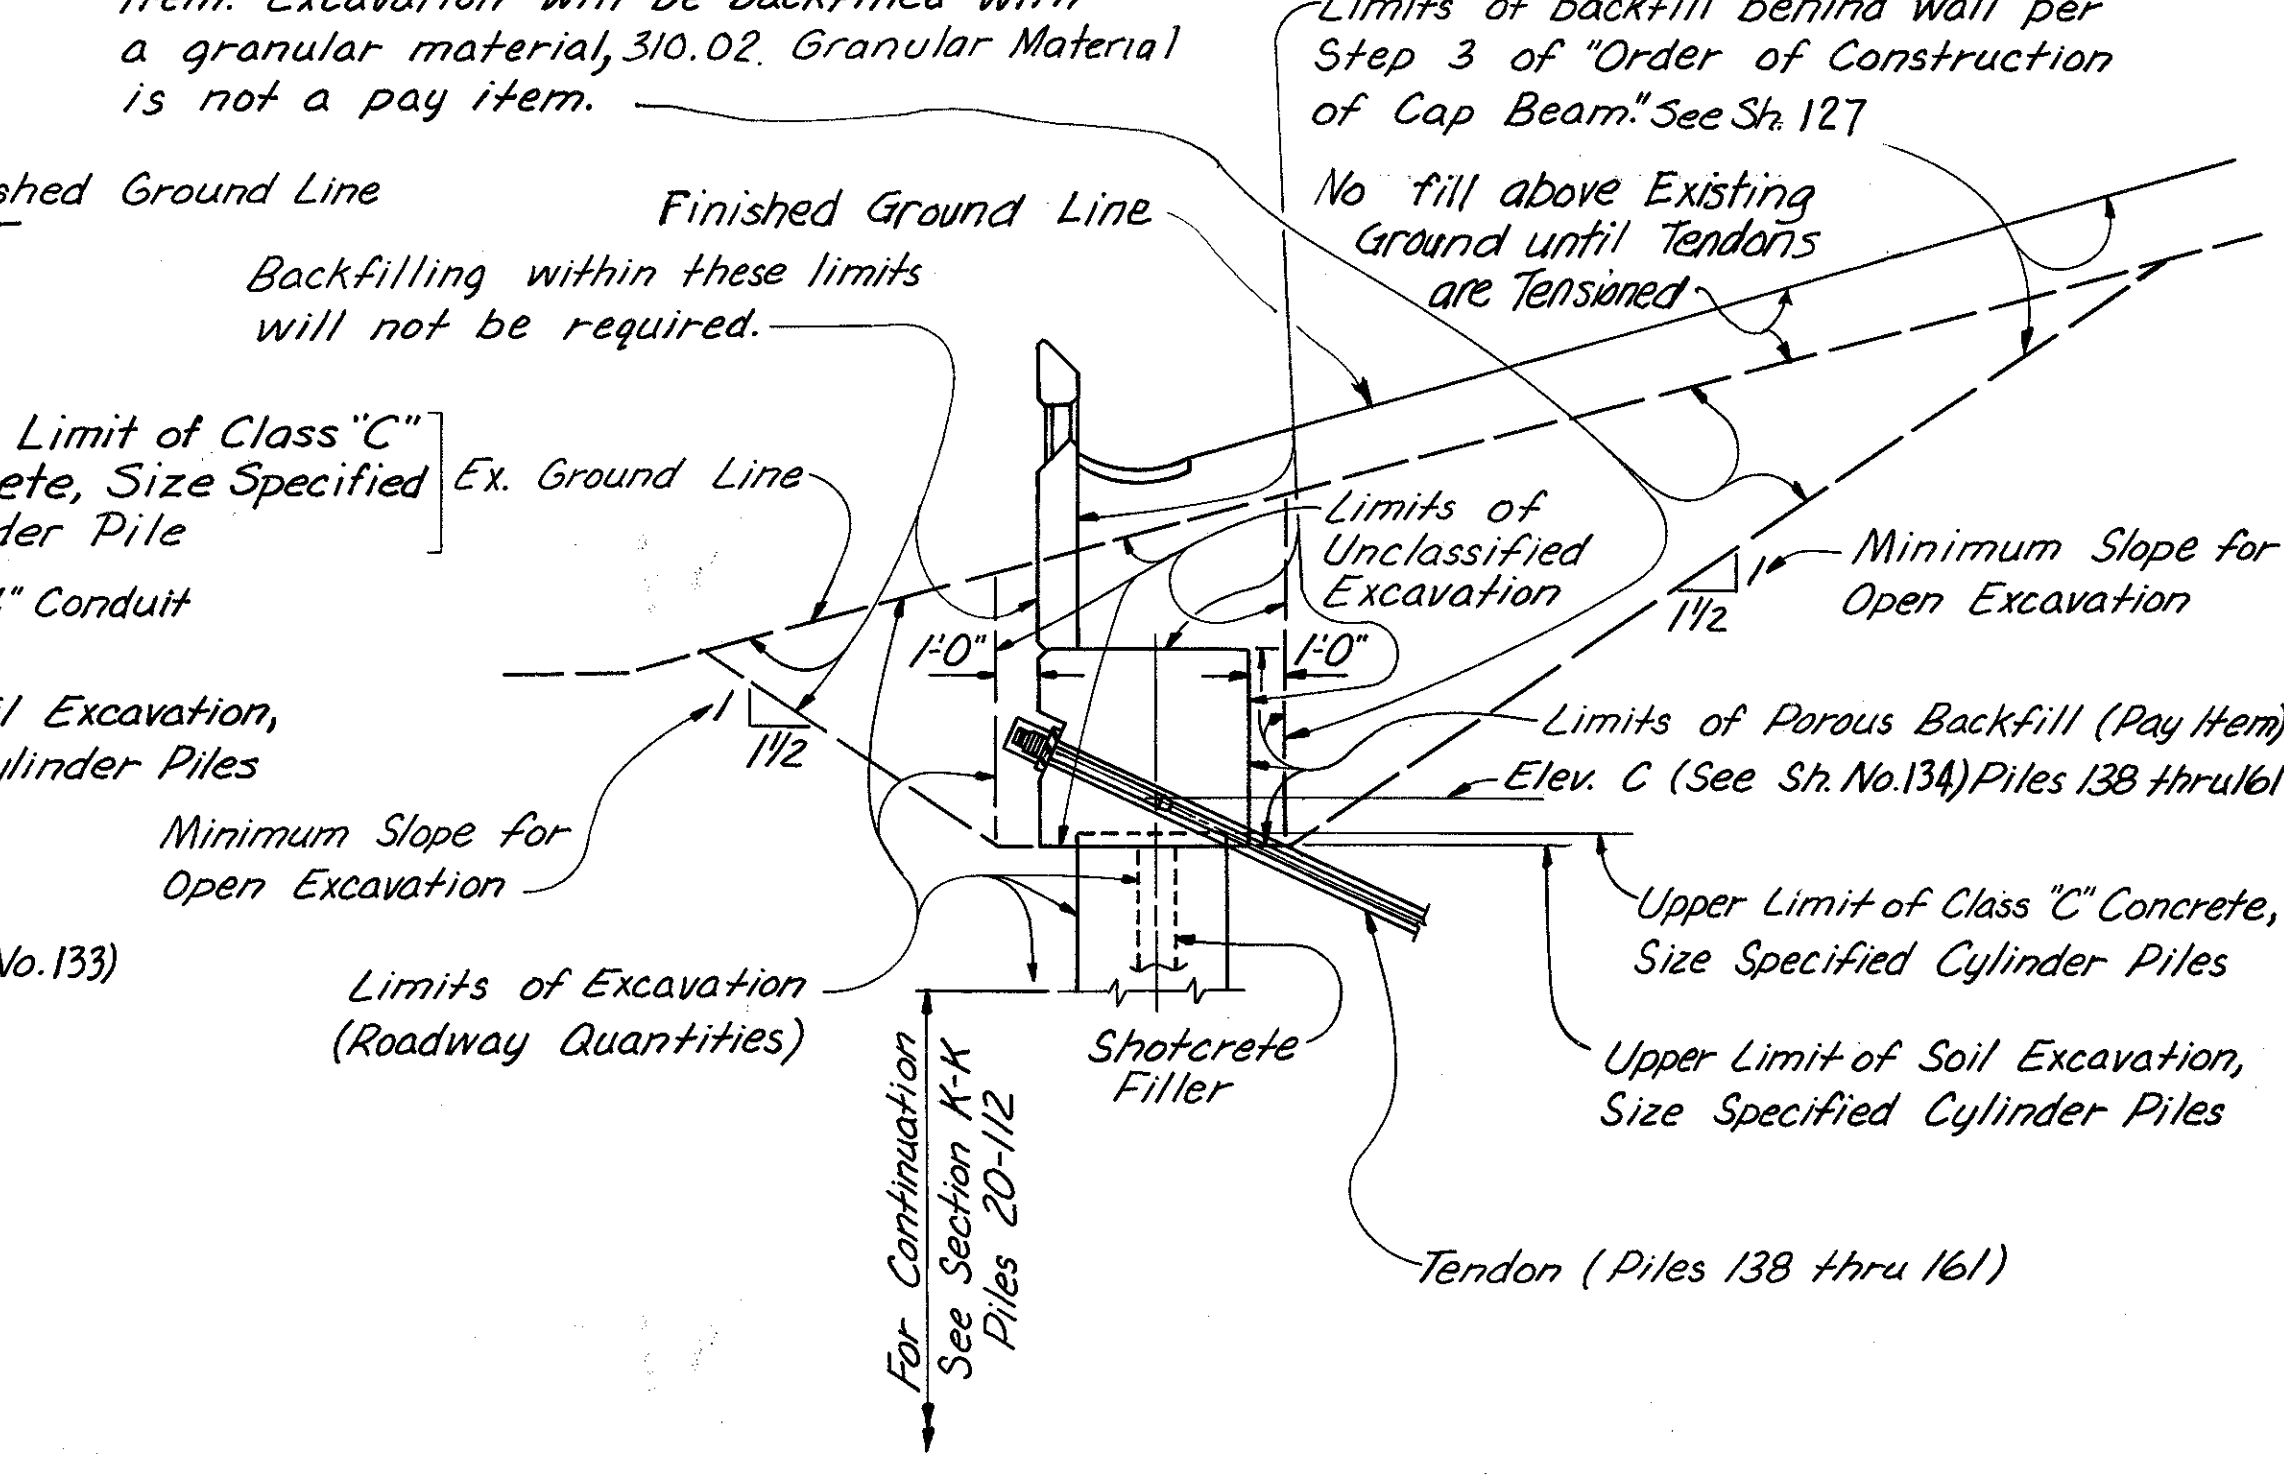 Item. Excavation will be backfilled with
a granular material, 310.02. Granular Material
is not a pay item.
Limits of backfill behind wall per
Step 3 of "Order of Construction
of Cap Beam." See Sh. 127
shed Ground Line
Finished Ground Line
No fill above Existing
Ground until Tendons
are Tensioned
Backfilling within these limits
will not be required.
Limit of Class "C"
ete, Size Specified
der Pile
Ex. Ground Line
Limits of
Unclassified
Excavation
Minimum Slope for
Open Excavation
1
1 1/2
" Conduit
1'-0"
1'-0"
il Excavation,
ylinder Piles
1
1 1/2
Limits of Porous Backfill (Pay Item)
Elev. C (See Sh. No. 134) Piles 138 thru 161
Minimum Slope for
Open Excavation
Upper Limit of Class "C" Concrete,
Size Specified Cylinder Piles
No. 133)
Limits of Excavation
(Roadway Quantities)
Shotcrete
Filler
Upper Limit of Soil Excavation,
Size Specified Cylinder Piles
For Continuation
See Section K-K
Piles 20-112
Tendon (Piles 138 thru 161)